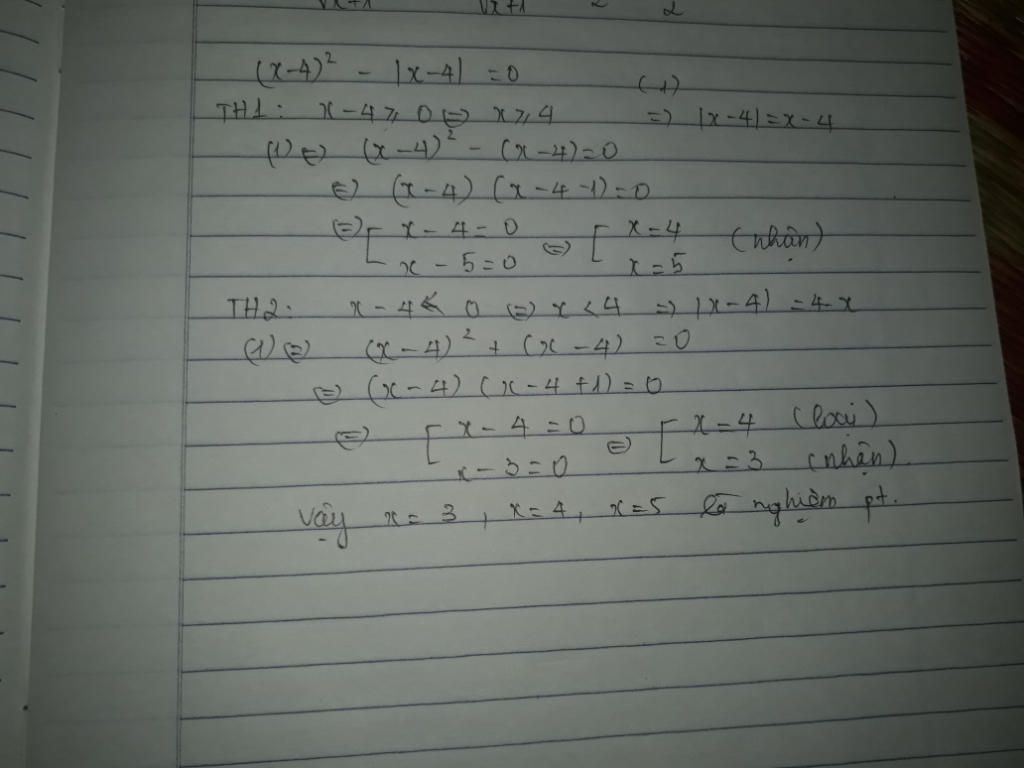 (x-4)² - |x-4| = 0 (1)
TH1: x-4 ≥ 0 ⇔ x ≥ 4 ⇒ |x-4| = x-4
(1) ⇔ (x-4)² - (x-4) = 0
⇔ (x-4) (x-4-1) = 0
⇔ [ x-4 = 0 ⇔ [ x = 4 (nhận)
x - 5 = 0 x = 5
TH2: x-4 < 0 ⇔ x < 4 ⇒ |x-4| = 4-x
(1) ⇔ (x-4)² + (x-4) = 0
⇔ (x-4) (x-4+1) = 0
⇔ [ x-4 = 0 ⇔ [ x = 4 (loại)
x-3 = 0 x = 3 (nhận).
Vậy x = 3, x = 4, x = 5 là nghiệm pt.